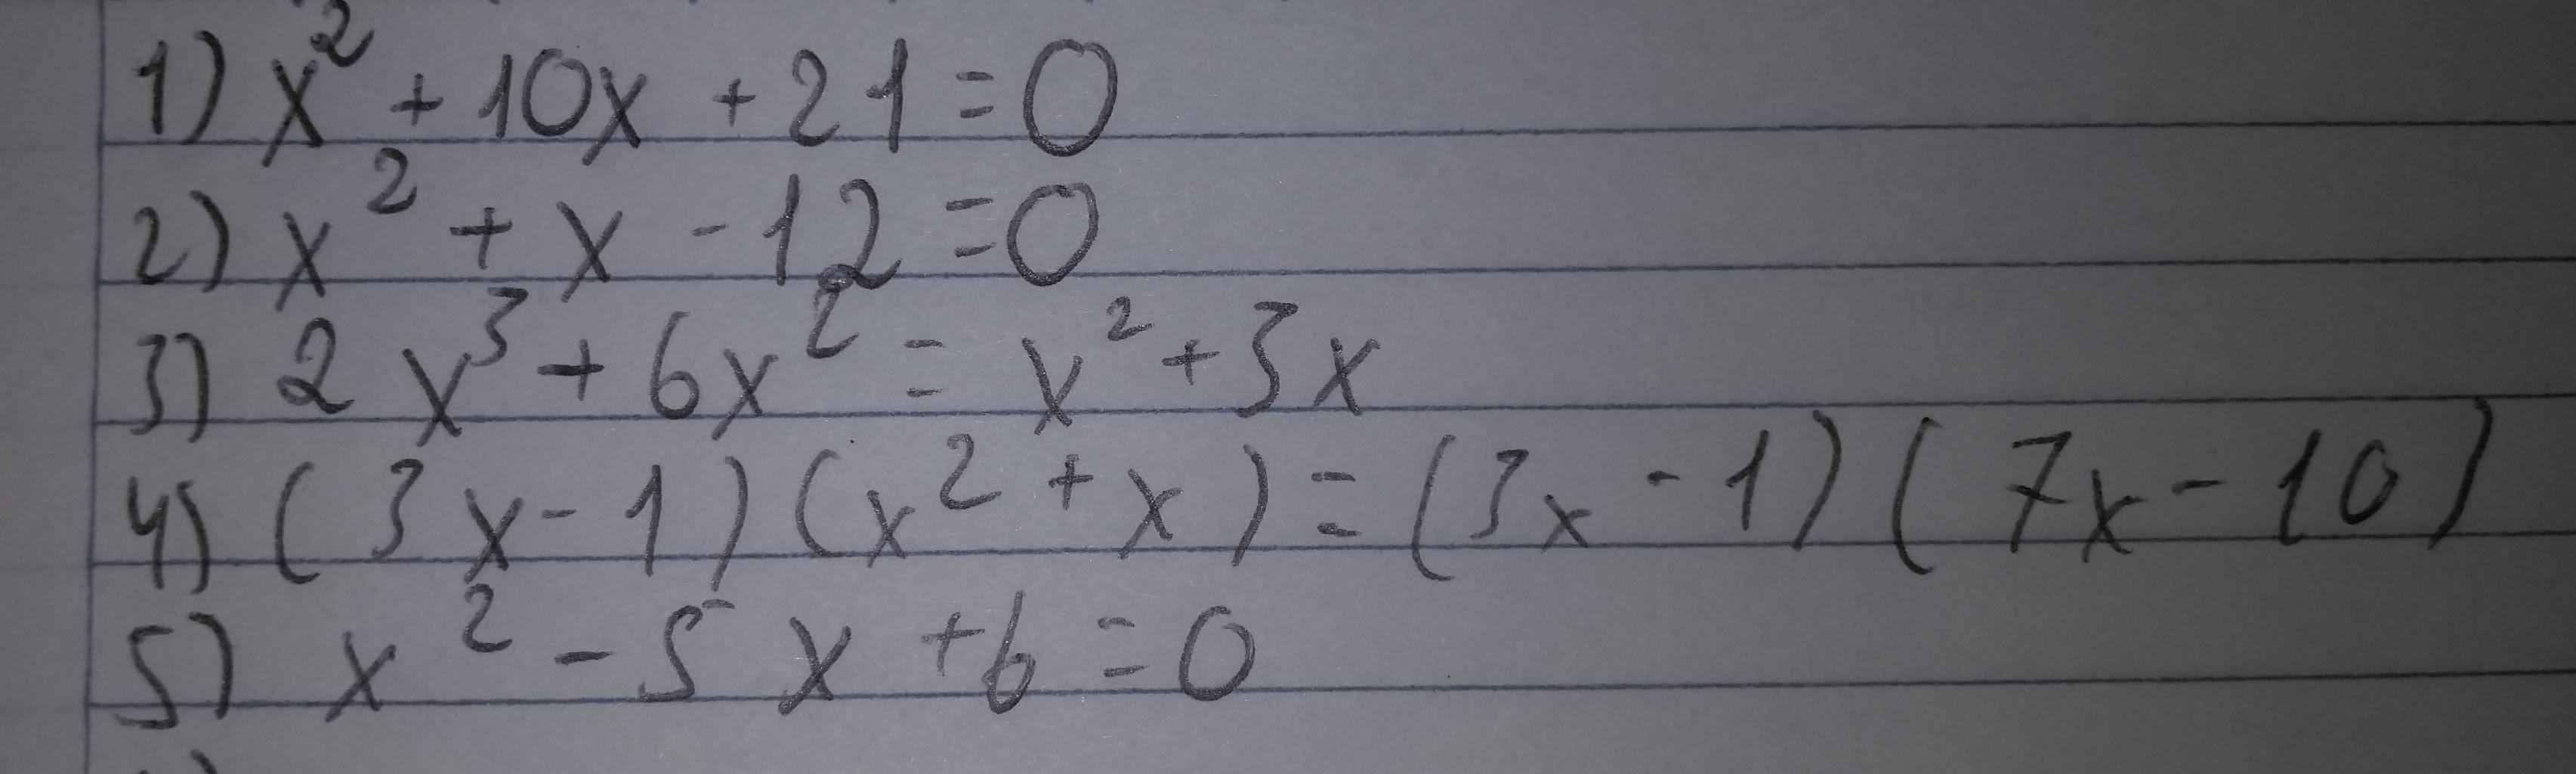 1) x² + 10x + 21 = 0
2) x² + x - 12 = 0
3) 2x³ + 6x² = x² + 3x
4) (3x - 1)(x² + x) = (3x - 1)(7x - 10)
5) x² - 5x + 6 = 0